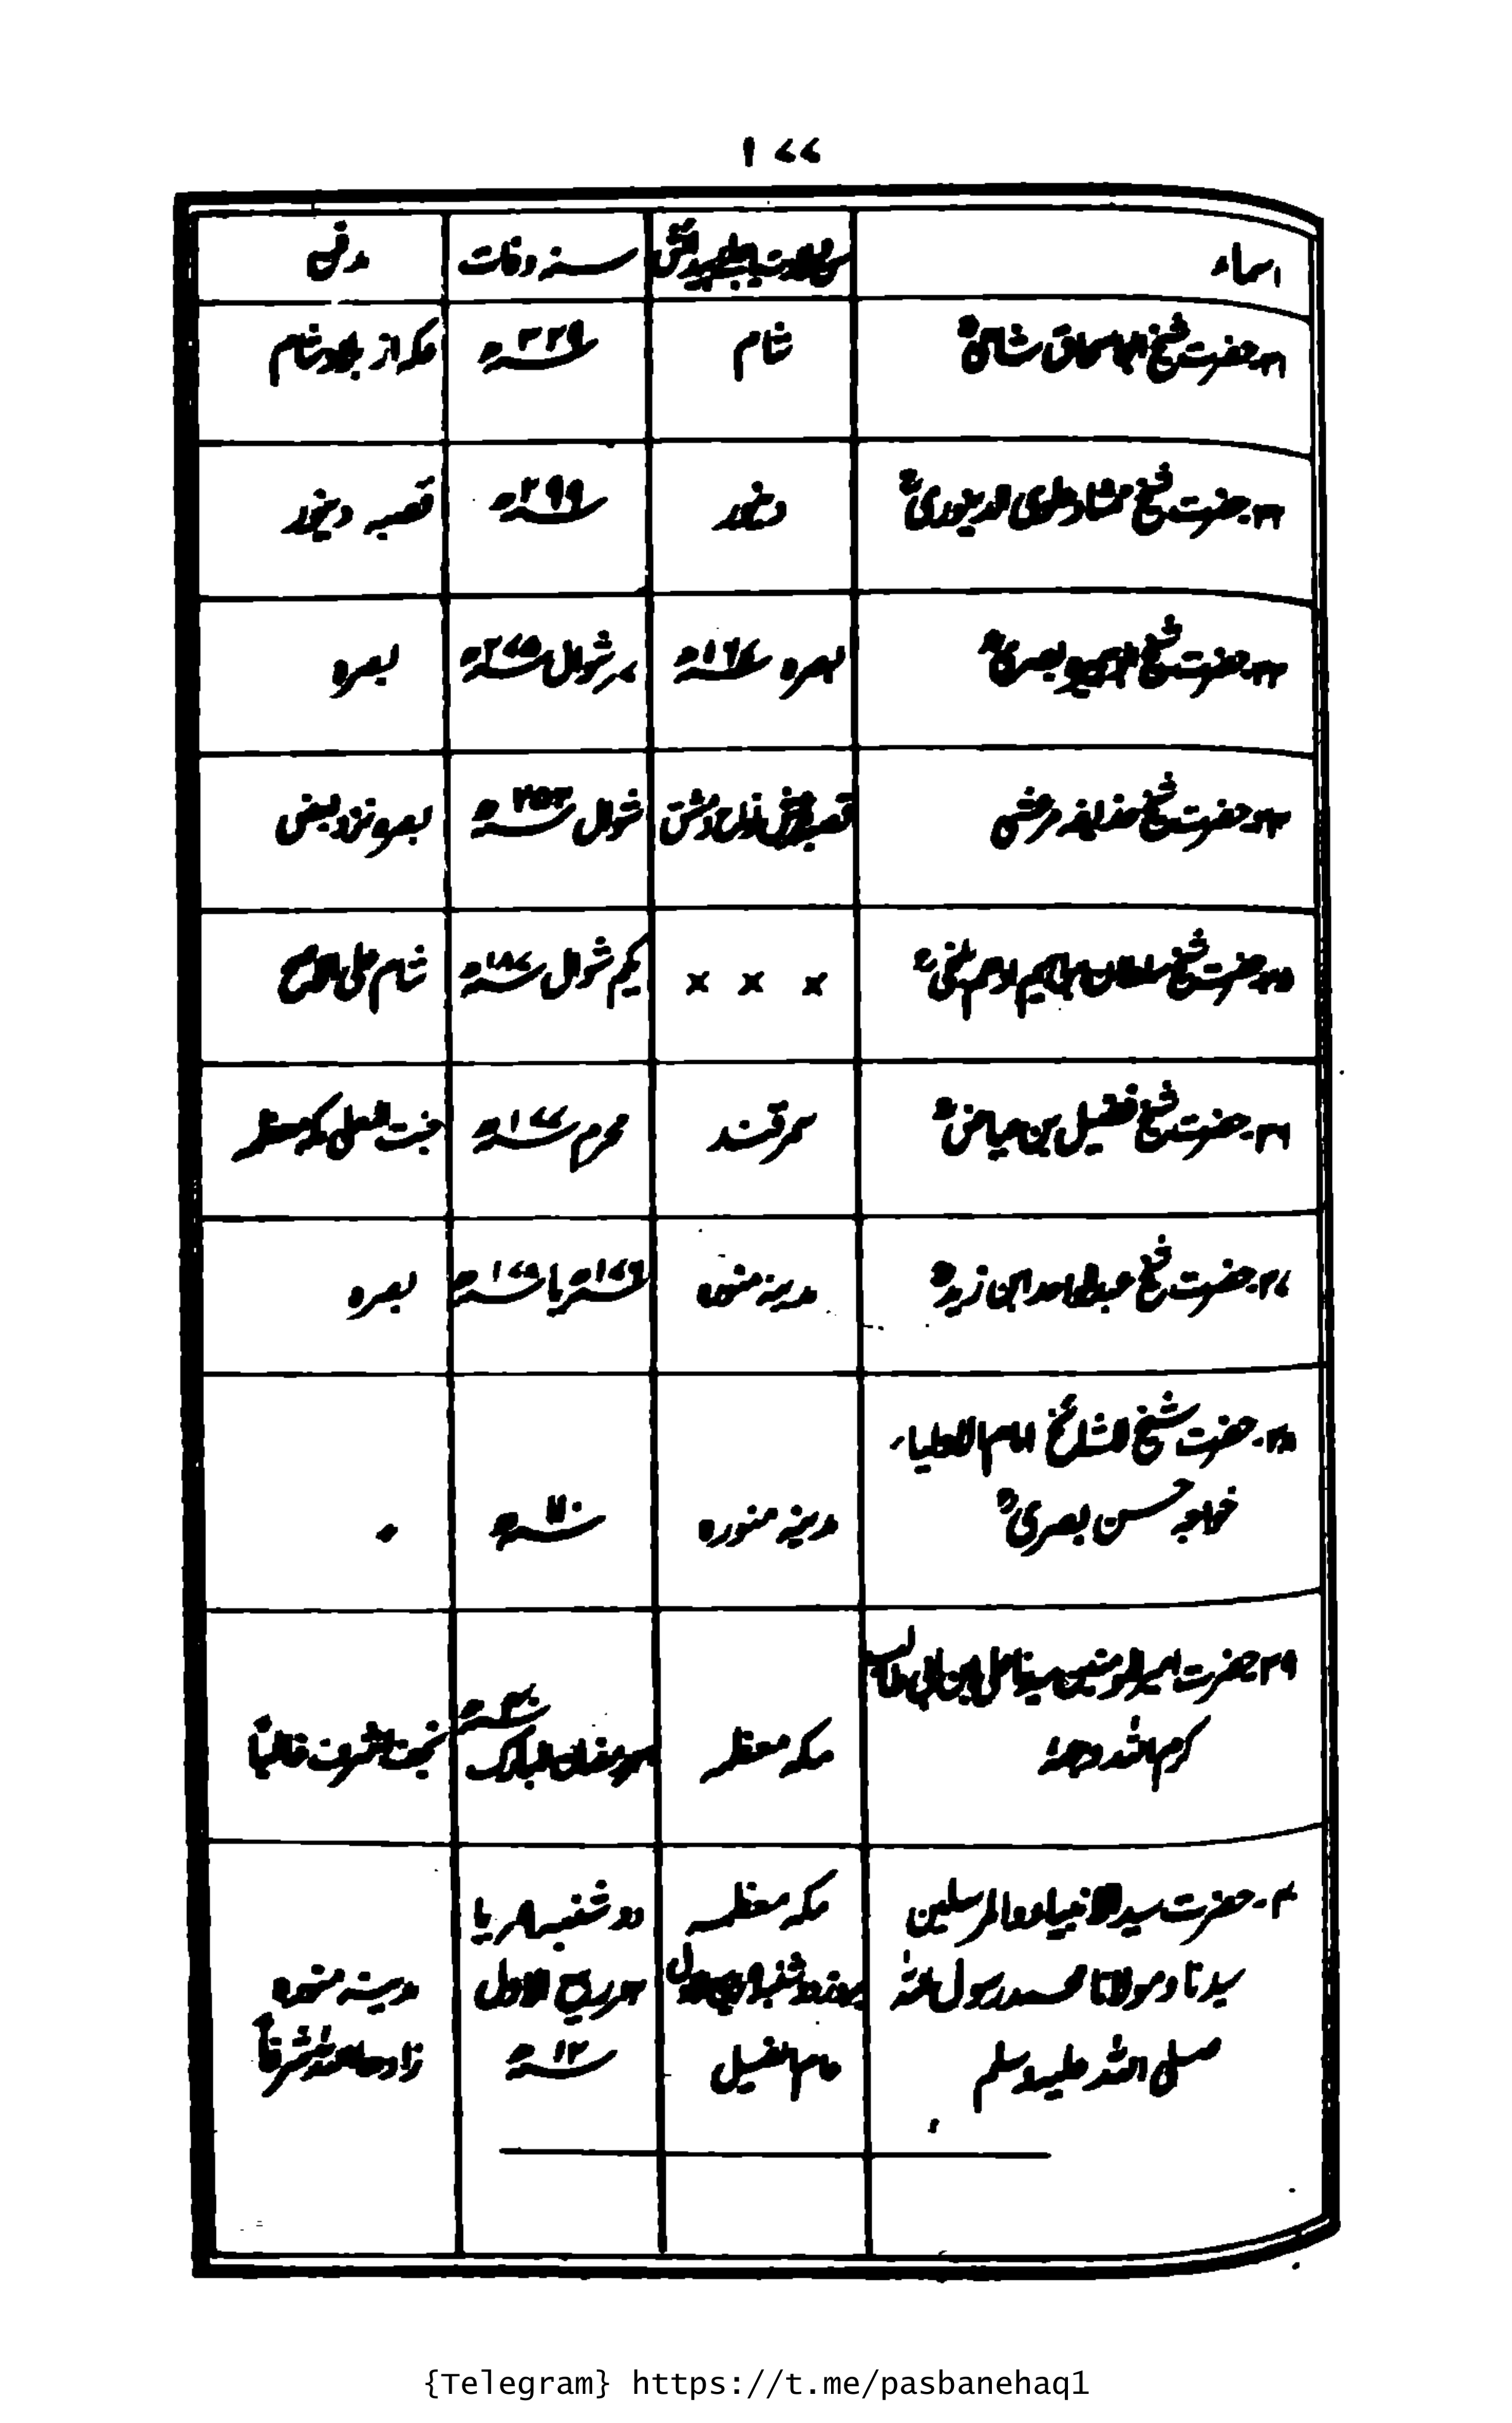 ۱۷۷
اسماء سن ولادت یا جائے پیدائش سنہ وفات مدفن
۲۱۔ حضرت شیخ ابو اسحاق شامیؒ شام ۳۲۹ھ عکہ از بلاد شام
۲۲۔ حضرت شیخ ممشاد علوی الدینوریؒ دینور ۲۹۹ھ قصبہ دینور
۲۳۔ حضرت شیخ بصریؒ بصرہ ۱۶۷ھ ۷ شوال ۲۷۵ھ بصرہ
۲۴۔ حضرت شیخ حذیفہ مرعشی شوال ۲۵۲ھ بصرہ نزد بعض
۲۵۔ حضرت شیخ سلطان ابراہیم ادہم بلخیؒ × × × یکم شوال ۱۸۷ھ شام علی الاصح
۲۶۔ حضرت شیخ فضیل بن عیاضؒ سمرقند محرم ۱۸۷ھ جنت المعلی مکہ معظمہ
۲۷۔ حضرت شیخ عبدالواحد ابن زیدؒ مدینہ منورہ ۱۷۶ھ یا ۱۷۸ھ بصرہ
۲۸۔ حضرت شیخ المشائخ امام الاولیاء
خواجہ حسن بصریؒ مدینہ منورہ ۱۱۰ھ 〃
۲۹۔ حضرت امیرالمومنین سیدنا علی ابن ابی طالب
کرم اللہ وجہہ مکہ معظمہ رمضان المبارک ۴۰ھ نجف اشرف غالباً
۳۰۔ حضرت سید الانبیاء والمرسلین مکہ معظمہ دو شنبہ ۲ یا
سیدنا ومولانا محمد رسول اللہ ربیع الاول مدینہ منورہ
صلی اللہ علیہ وسلم عام الفیل ۱۲ھ زادھا اللہ شرفاً
{Telegram} https://t.me/pasbanehaq1